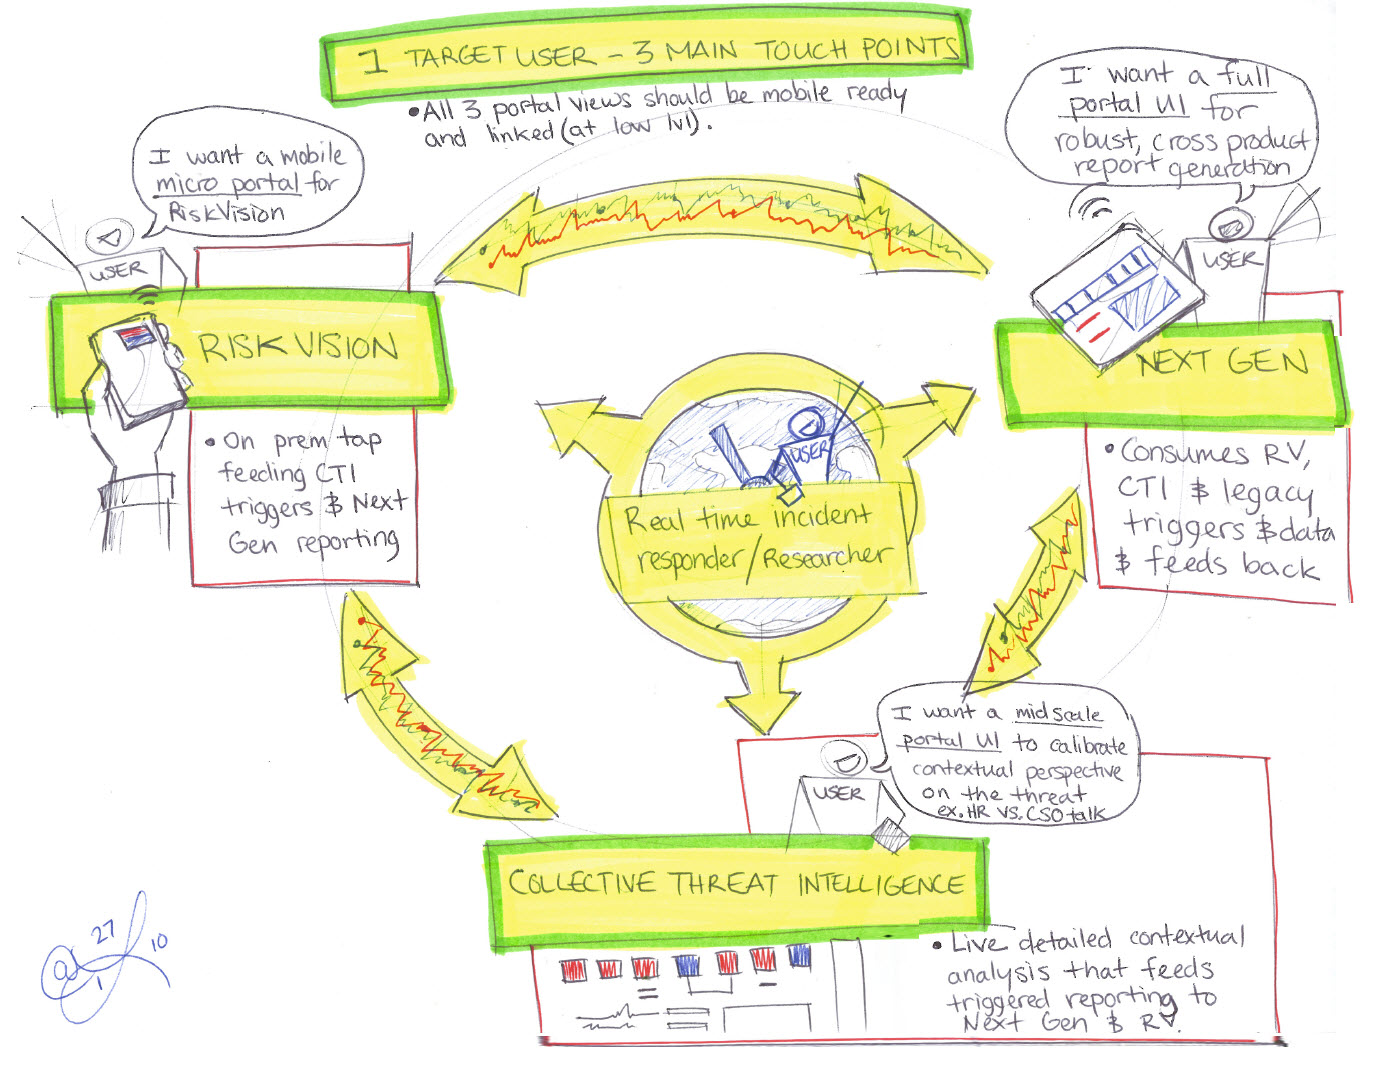 1 TARGET USER – 3 MAIN TOUCH POINTS
• All 3 portal views should be mobile ready
and linked (at low lvl).
I want a mobile
micro portal for
RiskVision
USER
RISK VISION
• On prem tap
feeding CTI
triggers & Next
Gen reporting
I want a full
portal UI for
robust, cross product
report generation
USER
NEXT GEN
• Consumes RV,
CTI & legacy
triggers & data
& feeds back
USER
Real time incident
responder/Researcher
I want a midscale
portal UI to calibrate
contextual perspective
on the threat
ex. HR VS. CSO talk
USER
COLLECTIVE THREAT INTELLIGENCE
• Live detailed contextual
analysis that feeds
triggered reporting to
Next Gen & RV.
27
10